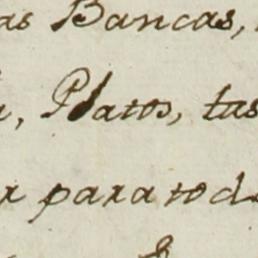 as Bancas,
, Platos, tas
r para tod